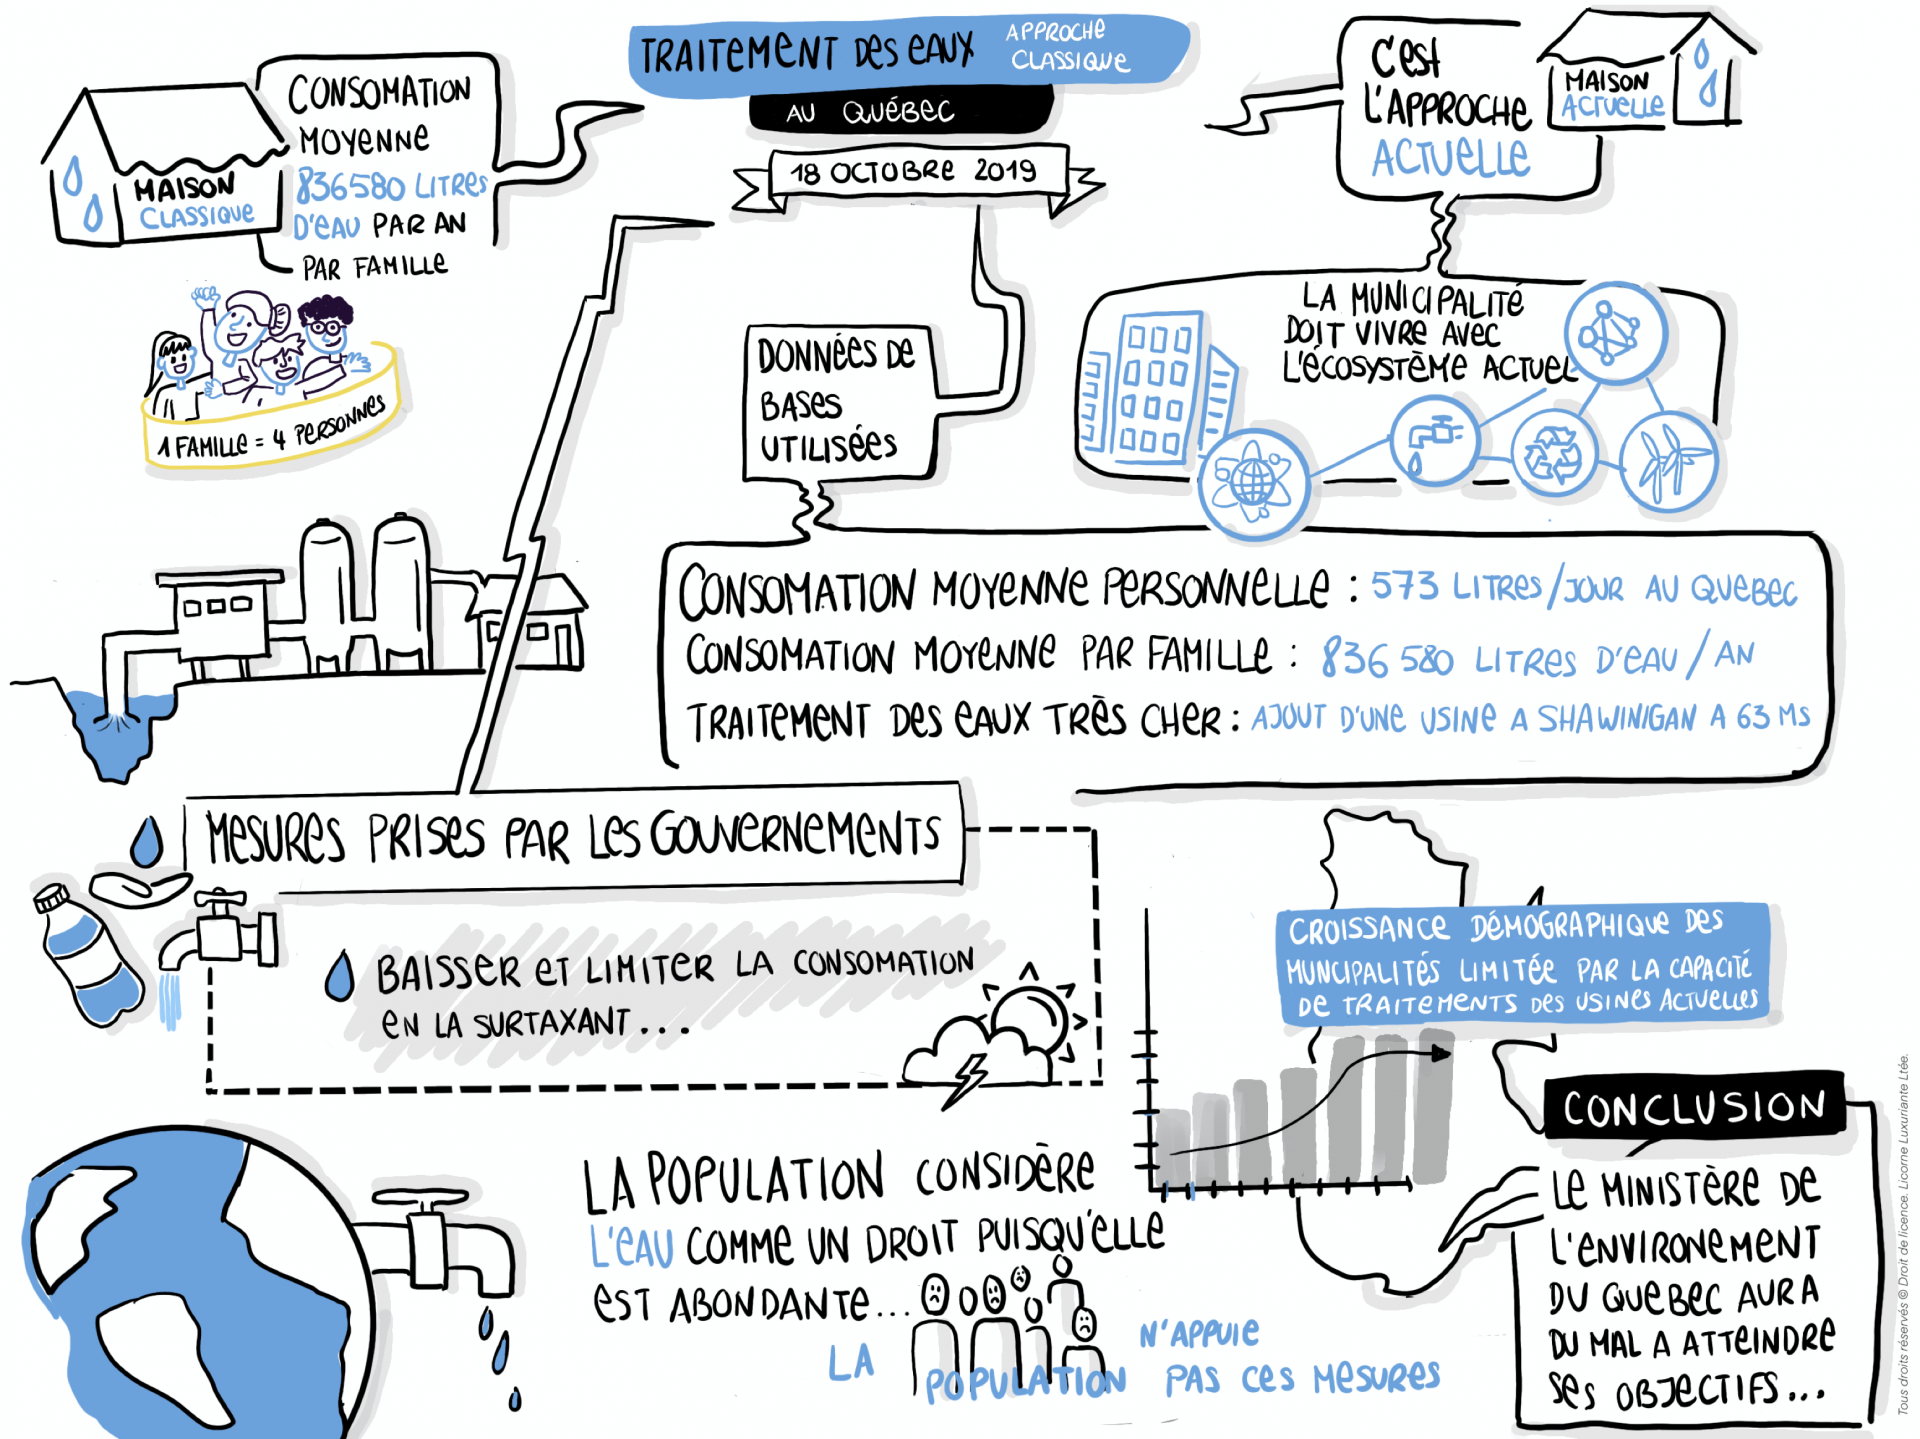 TRAITEMENT DES EAUX
APPROCHE
CLASSIQUE
AU QUÉBEC
18 OCTOBRE 2019
CONSOMATION
MOYENNE
836580 LITRES
D'EAU PAR AN
PAR FAMILLE
MAISON
CLASSIQUE
1 FAMILLE = 4 PERSONNES
C'EST
L'APPROCHE
ACTUELLE
MAISON
ACTUELLE
LA MUNICIPALITÉ
DOIT VIVRE AVEC
L'ÉCOSYSTÈME ACTUEL
DONNÉES DE
BASES
UTILISÉES
CONSOMATION MOYENNE PERSONNELLE : 573 LITRES/JOUR AU QUEBEC
CONSOMATION MOYENNE PAR FAMILLE : 836 580 LITRES D'EAU / AN
TRAITEMENT DES EAUX TRÈS CHER : AJOUT D'UNE USINE A SHAWINIGAN A 63 MS
MESURES PRISES PAR LES GOUVERNEMENTS
BAISSER ET LIMITER LA CONSOMATION
EN LA SURTAXANT...
CROISSANCE DÉMOGRAPHIQUE DES
MUNCIPALITÉS LIMITÉE PAR LA CAPACITÉ
DE TRAITEMENTS DES USINES ACTUELLES
LA POPULATION CONSIDÈRE
L'EAU COMME UN DROIT PUISQU'ELLE
EST ABONDANTE...
LA POPULATION N'APPUIE
PAS CES MESURES
CONCLUSION
LE MINISTÈRE DE
L'ENVIRONEMENT
DU QUEBEC AURA
DU MAL A ATTEINDRE
SES OBJECTIFS...
Tous droits réservés © Droit de licence. Licorne Luxuriante Ltée.